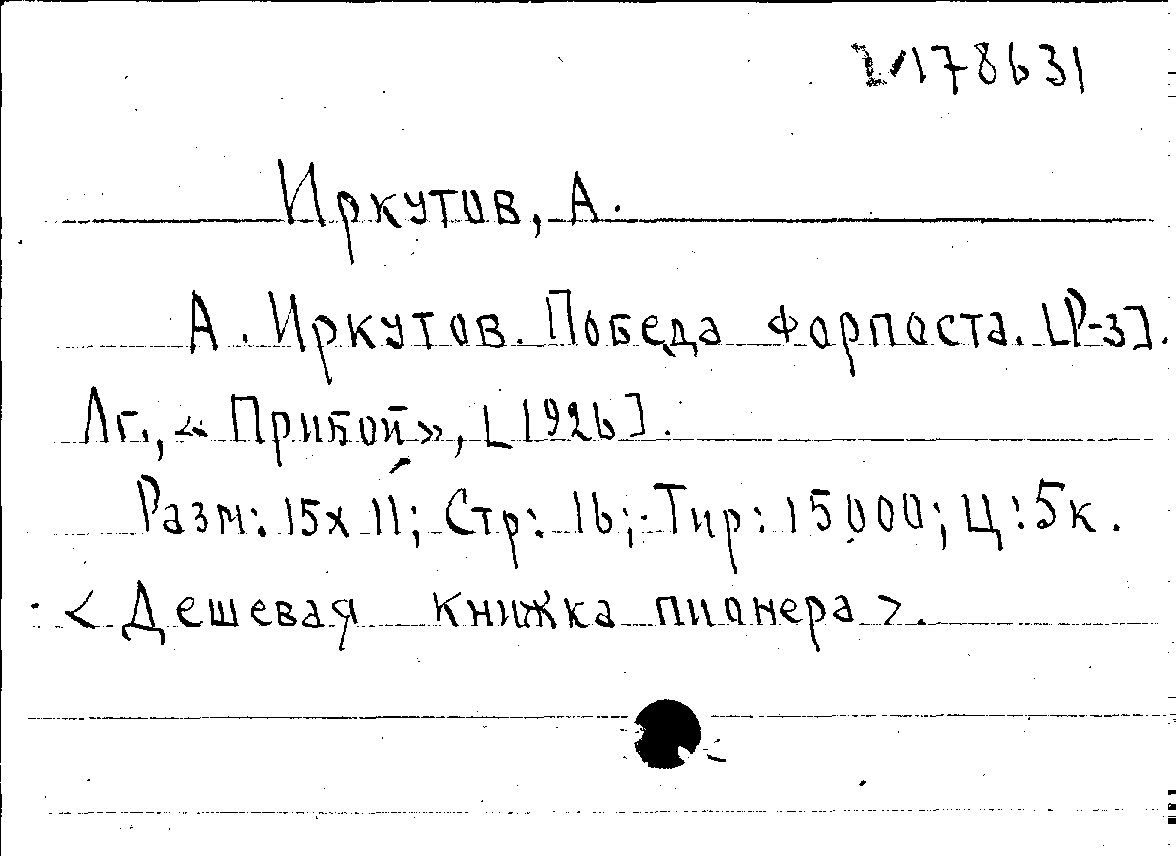 178631
Иркутов, А.
А. Иркутов. Победа форпоста. [Р-з].
Лг., «Прибой», [1926].
Разм: 15х11; Стр: 16; Тир: 15000; Ц: 5к.
<Дешевая книжка пионера>.